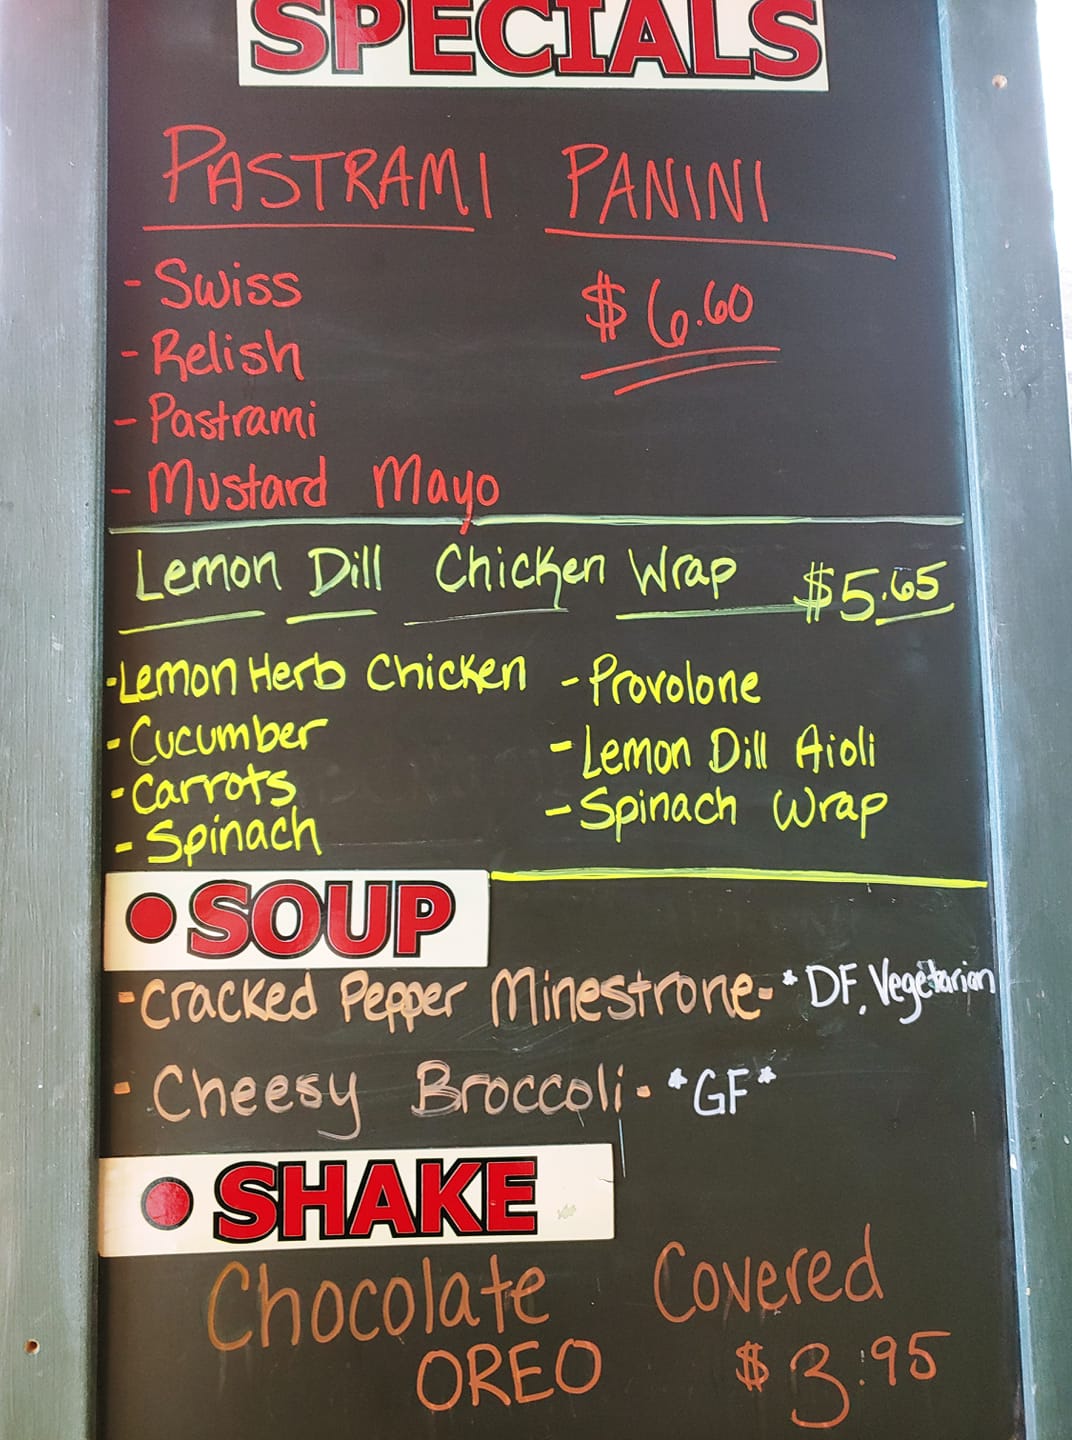 SPECIALS
PASTRAMI PANINI
- Swiss
$6.60
- Relish
- Pastrami
- Mustard Mayo
Lemon Dill Chicken Wrap $5.65
- Lemon Herb Chicken
- Cucumber
- Carrots
- Spinach
- Provolone
- Lemon Dill Aioli
- Spinach Wrap
• SOUP
- Cracked Pepper Minestrone - * DF, Vegetarian
- Cheesy Broccoli - *GF*
• SHAKE
Chocolate Covered
OREO $3.95